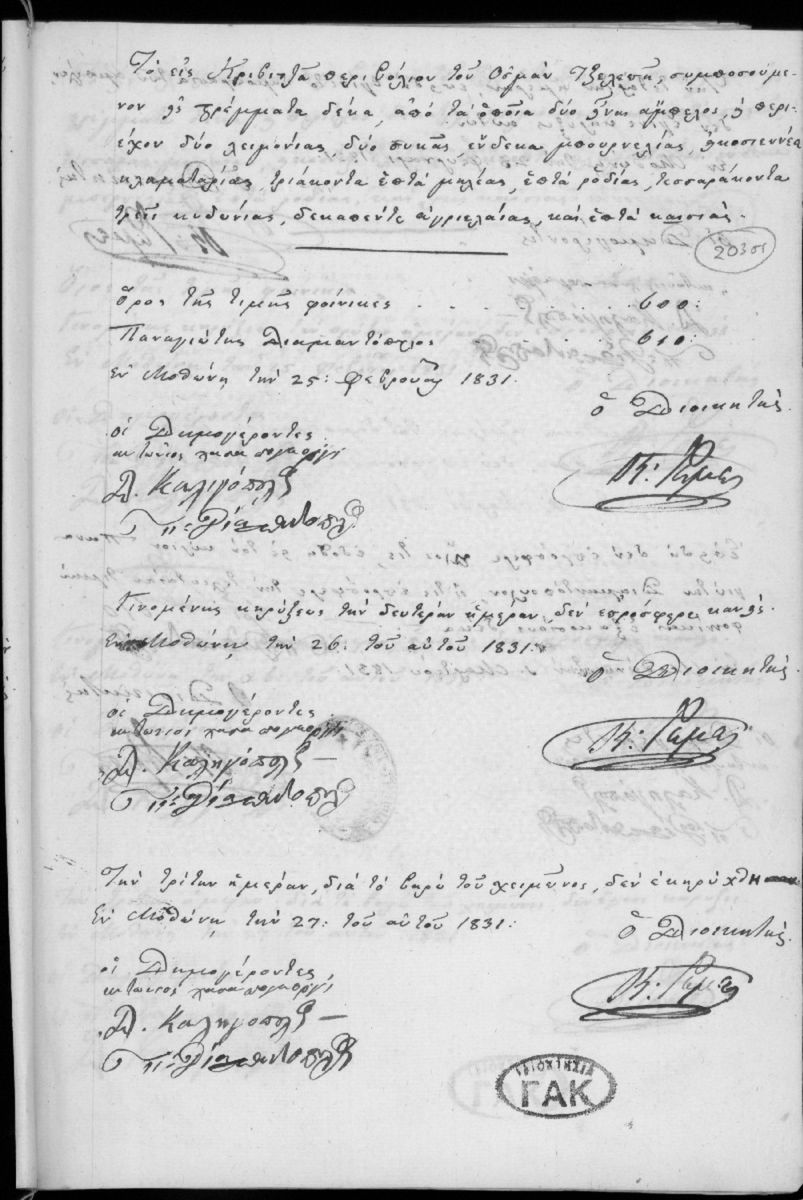 Τὸ εἰς Κριβιτζὰ περιβόλιον τοῦ Ὀσμὰν Τζελεπῆ, συμποσούμε-
νον εἰς στρέμματα δέκα, ἀπὸ τὰ ὁποῖα δύο εἶναι ἄμπελος, ἢ περι-
έχον δύο λειμονίας, δύο συκαῖς, ἕνδεκα μπουρνελιάς, εἰκοσιεννέα
κλαματαρίας, τριάκοντα ἑπτὰ μηλέας, ἑπτὰ ροδίας, τεσσαράκοντα
τρεῖς κυδωνίας, δεκαπέντε ἀγριελαίας, καὶ ἑπτὰ καισιάς.
203
Ὅρος τῆς τιμῆς φοίνικες . . . . . 600:
Παναγιώτης Διαμαντόπουλος . . . . 610:
Ἐν Μοθώνῃ τὴν 25: Φεβρουαρ 1831:
ὁ Διοικητὴς
οἱ Δημογέροντες
Κ: Ράμας
Δ. Καλιγόπουλος
Π: Διαμαντοπουλος
Γινομένης κηρύξεως τὴν δευτέραν ἡμέραν, δὲν ἐπρόσφερε κανείς.
Ἐν Μοθώνῃ τὴν 26: τοῦ αὐτοῦ 1831:
ὁ Διοικητὴς
οἱ Δημογέροντες
Κ: Ράμας
Δ. Καληγόπουλος
Π: Διαμαντοπουλος
Τὴν τρίτην ἡμέραν, διὰ τὸ βαρὺ τοῦ χειμῶνος, δὲν ἐκηρύχθη
Ἐν Μοθώνῃ τὴν 27: τοῦ αὐτοῦ 1831:
ὁ Διοικητὴς
οἱ Δημογέροντες
Κ: Ράμας
Δ. Καληγόπουλος
Π: Διαμαντοπουλος
ΙΔΙΟΚΤΗΣΙΑ
ΓΑΚ